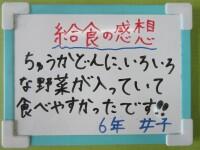 給食の感想
ちゅうかどんに、いろいろ
な野菜が入っていて
食べやすかったです!!
6年 女子